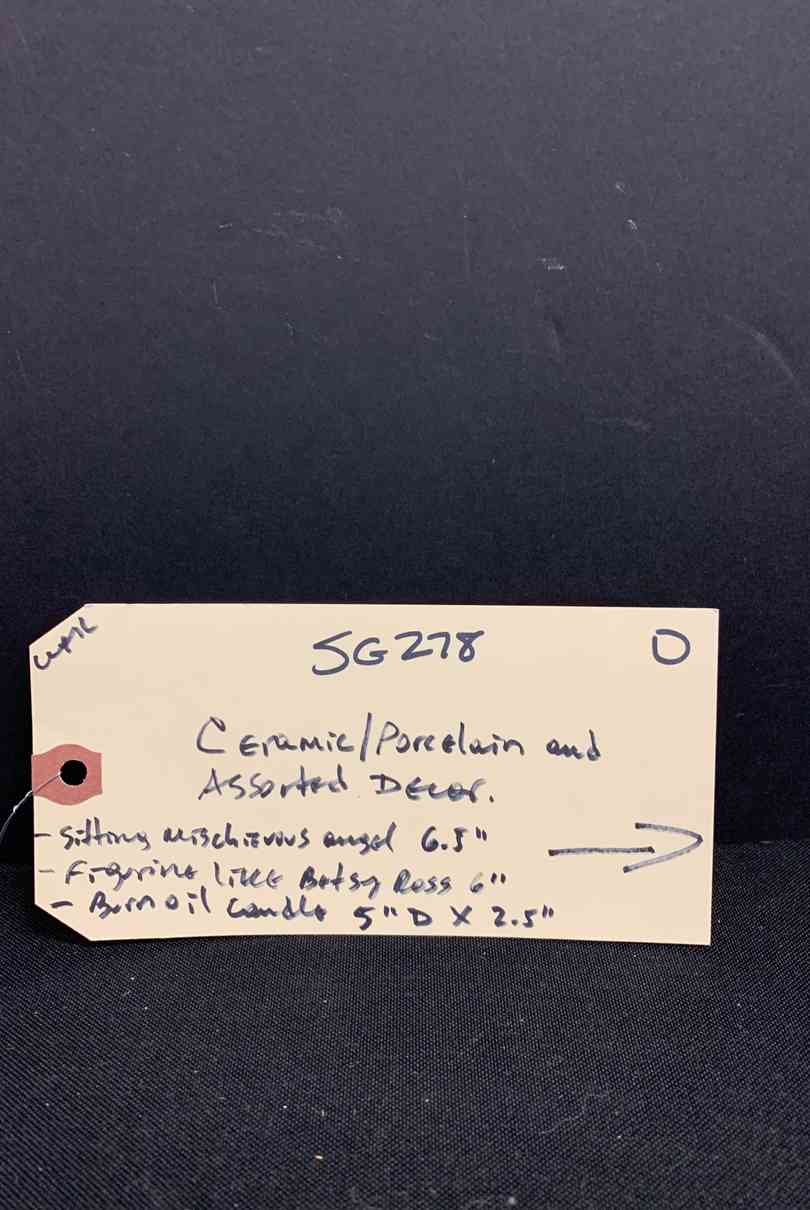 SG278 O
Ceramic/Porcelain and
Assorted Decor.
- Sitting mischievous angel 6.5"
- Figurine like Betsy Ross 6"
- Born oil Candle 5" D X 2.5"